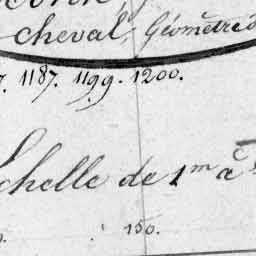 cheval, Géomètre
1187. 1199. 1200.
Echelle de 1m à
150.